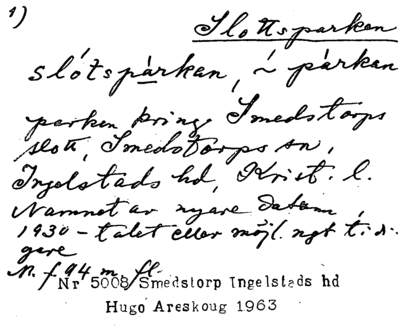 1)
Slottsparken
slótspàrkan, ~ pàrkan
parken kring Smedstorps
slott, Smedstorps sn,
Ingelstads hd, Krist. l.
Namnet av nyare datum,
1930-talet eller möjl. ngt tidi-
gare
M. f. 94 m. fl.
Nr 5008 Smedstorp Ingelstads hd
Hugo Areskoug 1963